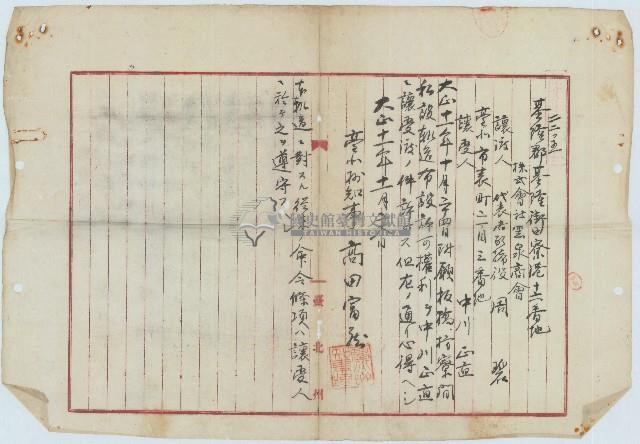 基隆郡基隆街田寮港十六番地
株式會社雲泉商會
讓渡人 代表者取締役 周 碧
臺北市表町二丁目三番地
讓受人 中川正直
大正十一年十月 日附願板橋 枋寮間
私設軌道布設許可權利ヲ中川正直
ニ讓受渡ノ件許可ス但左ノ通心得ヘシ
大正十一年十一月 日
臺北州知事 高田富藏
本軌道ニ對スル從 命令條項ハ讓受人
ニ於テ之ヲ遵守スヘシ
臺北州
國史館臺灣文獻館
TAIWAN HISTORICA